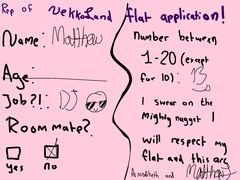 Rep of Nekkoland flat application!
Name: Matthew
Age:
Job?!: DJ
Roommate?
Yes No
Number between
1-20 (except
for 10): 13
I swear on the
Mighty nugget I
will respect my
flat and this arc
and Matthew